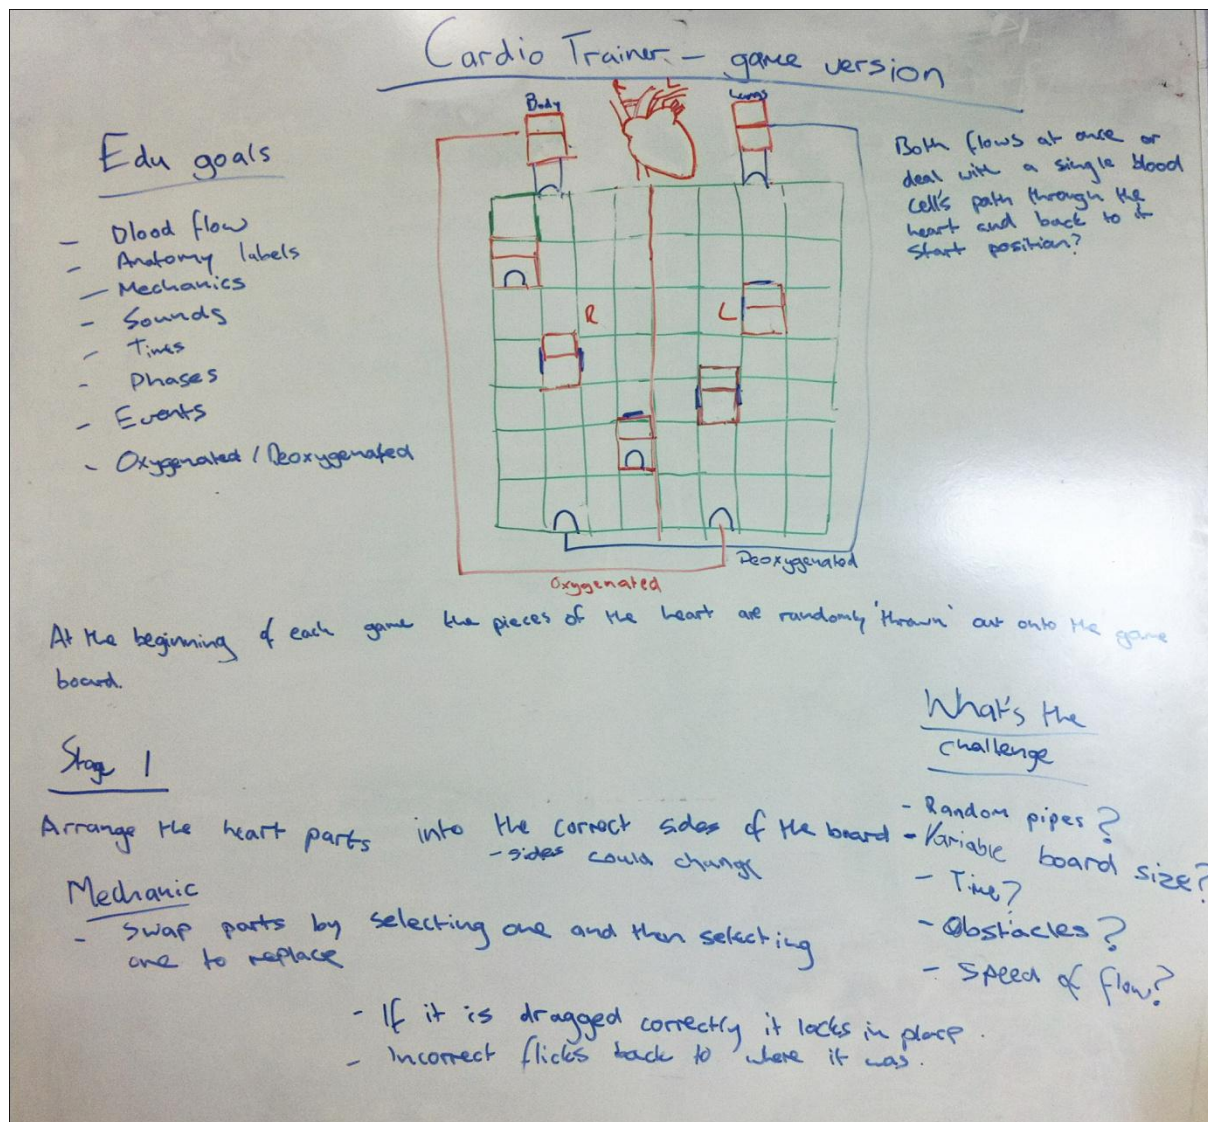 Cardio Trainer - game version
Body
R
L
Lungs
Edu goals
- Blood flow
- Anatomy labels
- Mechanics
- Sounds
- Times
- Phases
- Events
- Oxygenated / Deoxygenated
Both flows at once or
deal with a single blood
cell's path through the
heart and back to it
start position?
R
L
Deoxygenated
Oxygenated
At the beginning of each game the pieces of the heart are randomly 'thrown' out onto the game
board.
Stage 1
Arrange the heart parts into the correct sides of the board
- sides could change
Mechanic
- Swap parts by selecting one and then selecting
one to replace
- If it is dragged correctly it locks in place.
- Incorrect flicks back to where it was.
What's the
challenge
- Random pipes?
- Variable board size?
- Time?
- Obstacles?
- Speed of flow?